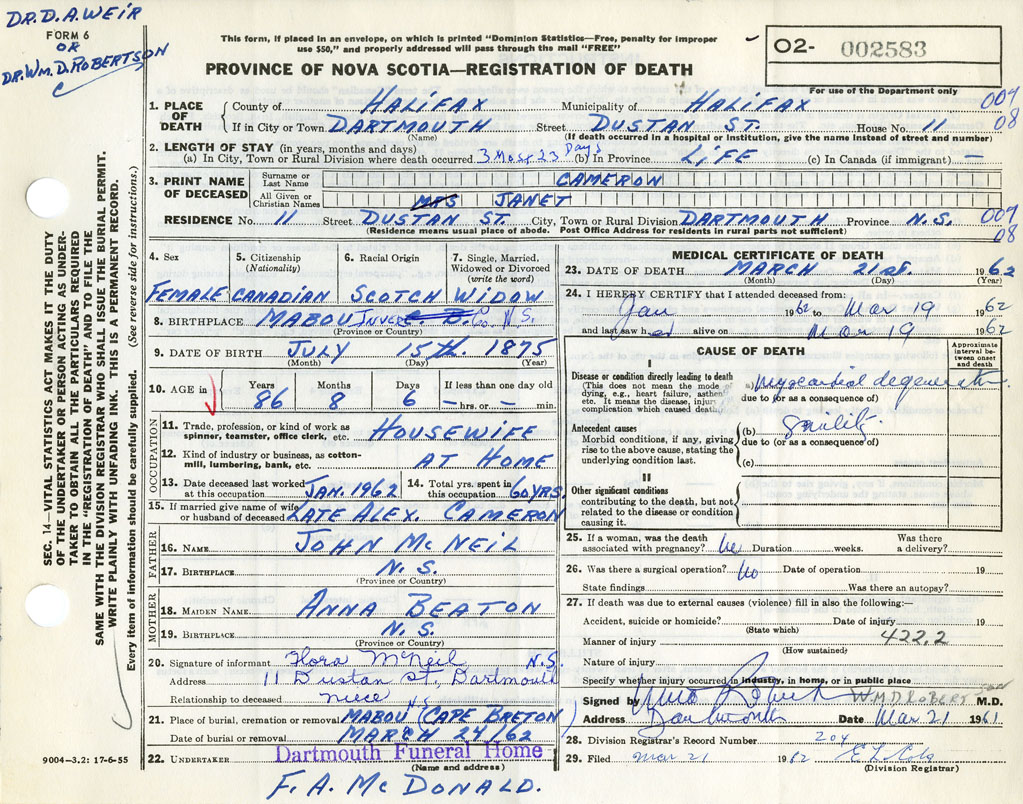 DR. D. A. WEIR
FORM 6
OR
DR. WM. D. ROBERTSON
This form, if placed in an envelope, on which is printed "Dominion Statistics—Free, penalty for improper
use $50," and properly addressed will pass through the mail "FREE"
PROVINCE OF NOVA SCOTIA—REGISTRATION OF DEATH
O2- 002583
For use of the Department only
009
08
1. PLACE OF DEATH
County of HALIFAX Municipality of HALIFAX
If in City or Town DARTMOUTH Street DUSTAN ST. House No. 11
(Name) (If death occurred in a hospital or institution, give the name instead of street and number)
2. LENGTH OF STAY (in years, months and days)
(a) In City, Town or Rural Division where death occurred 3 Mos. 23 Days (b) In Province LIFE (c) In Canada (if immigrant) —
3. PRINT NAME OF DECEASED
Surname or Last Name CAMERON
All Given or Christian Names MRS JANET
RESIDENCE No. 11 Street DUSTAN ST. City, Town or Rural Division DARTMOUTH Province N.S.
009
08
(Residence means usual place of abode. Post Office Address for residents in rural parts not sufficient)
4. Sex
FEMALE
5. Citizenship (Nationality)
CANADIAN
6. Racial Origin
SCOTCH
7. Single, Married, Widowed or Divorced (write the word)
WIDOW
8. BIRTHPLACE MABOU INVER C. B. Co. N.S.
(Province or Country)
9. DATE OF BIRTH JULY 15th. 1875
(Month) (Day) (Year)
10. AGE in
Years Months Days If less than one day old
86 8 6 — hrs. or — min.
OCCUPATION
11. Trade, profession, or kind of work as spinner, teamster, office clerk, etc. HOUSEWIFE
12. Kind of industry or business, as cotton-mill, lumbering, bank, etc. AT HOME
13. Date deceased last worked at this occupation JAN. 1962 14. Total yrs. spent in this occupation 60 YRS.
15. If married give name of wife or husband of deceased LATE ALEX. CAMERON
FATHER
16. NAME JOHN McNEIL
17. BIRTHPLACE N.S.
(Province or Country)
MOTHER
18. MAIDEN NAME ANNA BEATON
19. BIRTHPLACE N.S.
(Province or Country)
20. Signature of informant Flora McNeil
Address 11 Dustan St. Dartmouth N.S.
Relationship to deceased niece
21. Place of burial, cremation or removal MABOU (CAPE BRETON N.S.)
Date of burial or removal MARCH 24/62
22. UNDERTAKER Dartmouth Funeral Home
(Name and address)
F. A. McDONALD.
MEDICAL CERTIFICATE OF DEATH
23. DATE OF DEATH MARCH 21st. 1962
(Month) (Day) (Year)
24. I HEREBY CERTIFY that I attended deceased from:
Jan 1962 to Mar 19 1962
and last saw her alive on Mar 19 1962
CAUSE OF DEATH
Approximate interval between onset and death
I
Disease or condition directly leading to death
(This does not mean the mode of dying, e.g., heart failure, asthenia, etc. It means the disease, injury, complication which caused death.)
(a) myocardial degeneration
due to (or as a consequence of)
Antecedent causes
Morbid conditions, if any, giving rise to the above cause, stating the underlying condition last.
(b) Senility
due to (or as a consequence of)
(c)
II
Other significant conditions
contributing to the death, but not related to the disease or condition causing it.
25. If a woman, was the death associated with pregnancy? No Duration weeks. Was there a delivery?
26. Was there a surgical operation? No Date of operation 19
State findings Was there an autopsy?
27. If death was due to external causes (violence) fill in also the following:—
Accident, suicide or homicide? Date of injury 19
(State which)
422.2
Manner of injury
(How sustained)
Nature of injury
Specify whether injury occurred in industry, in home, or in public place
Signed by W.M.D ROBERTSON M.D.
Address Dartmouth Date Mar 21 1961
28. Division Registrar's Record Number 204
29. Filed Mar 21 1962
(Division Registrar)
SEC. 14—VITAL STATISTICS ACT MAKES IT THE DUTY
OF THE UNDERTAKER OR PERSON ACTING AS UNDER-
TAKER TO OBTAIN ALL THE PARTICULARS REQUIRED
IN THE "REGISTRATION OF DEATH" AND TO FILE THE
SAME WITH THE DIVISION REGISTRAR WHO SHALL ISSUE THE BURIAL PERMIT.
WRITE PLAINLY WITH UNFADING INK. THIS IS A PERMANENT RECORD.
Every item of information should be carefully supplied. (See reverse side for instructions.)
9004-3.2: 17-6-55